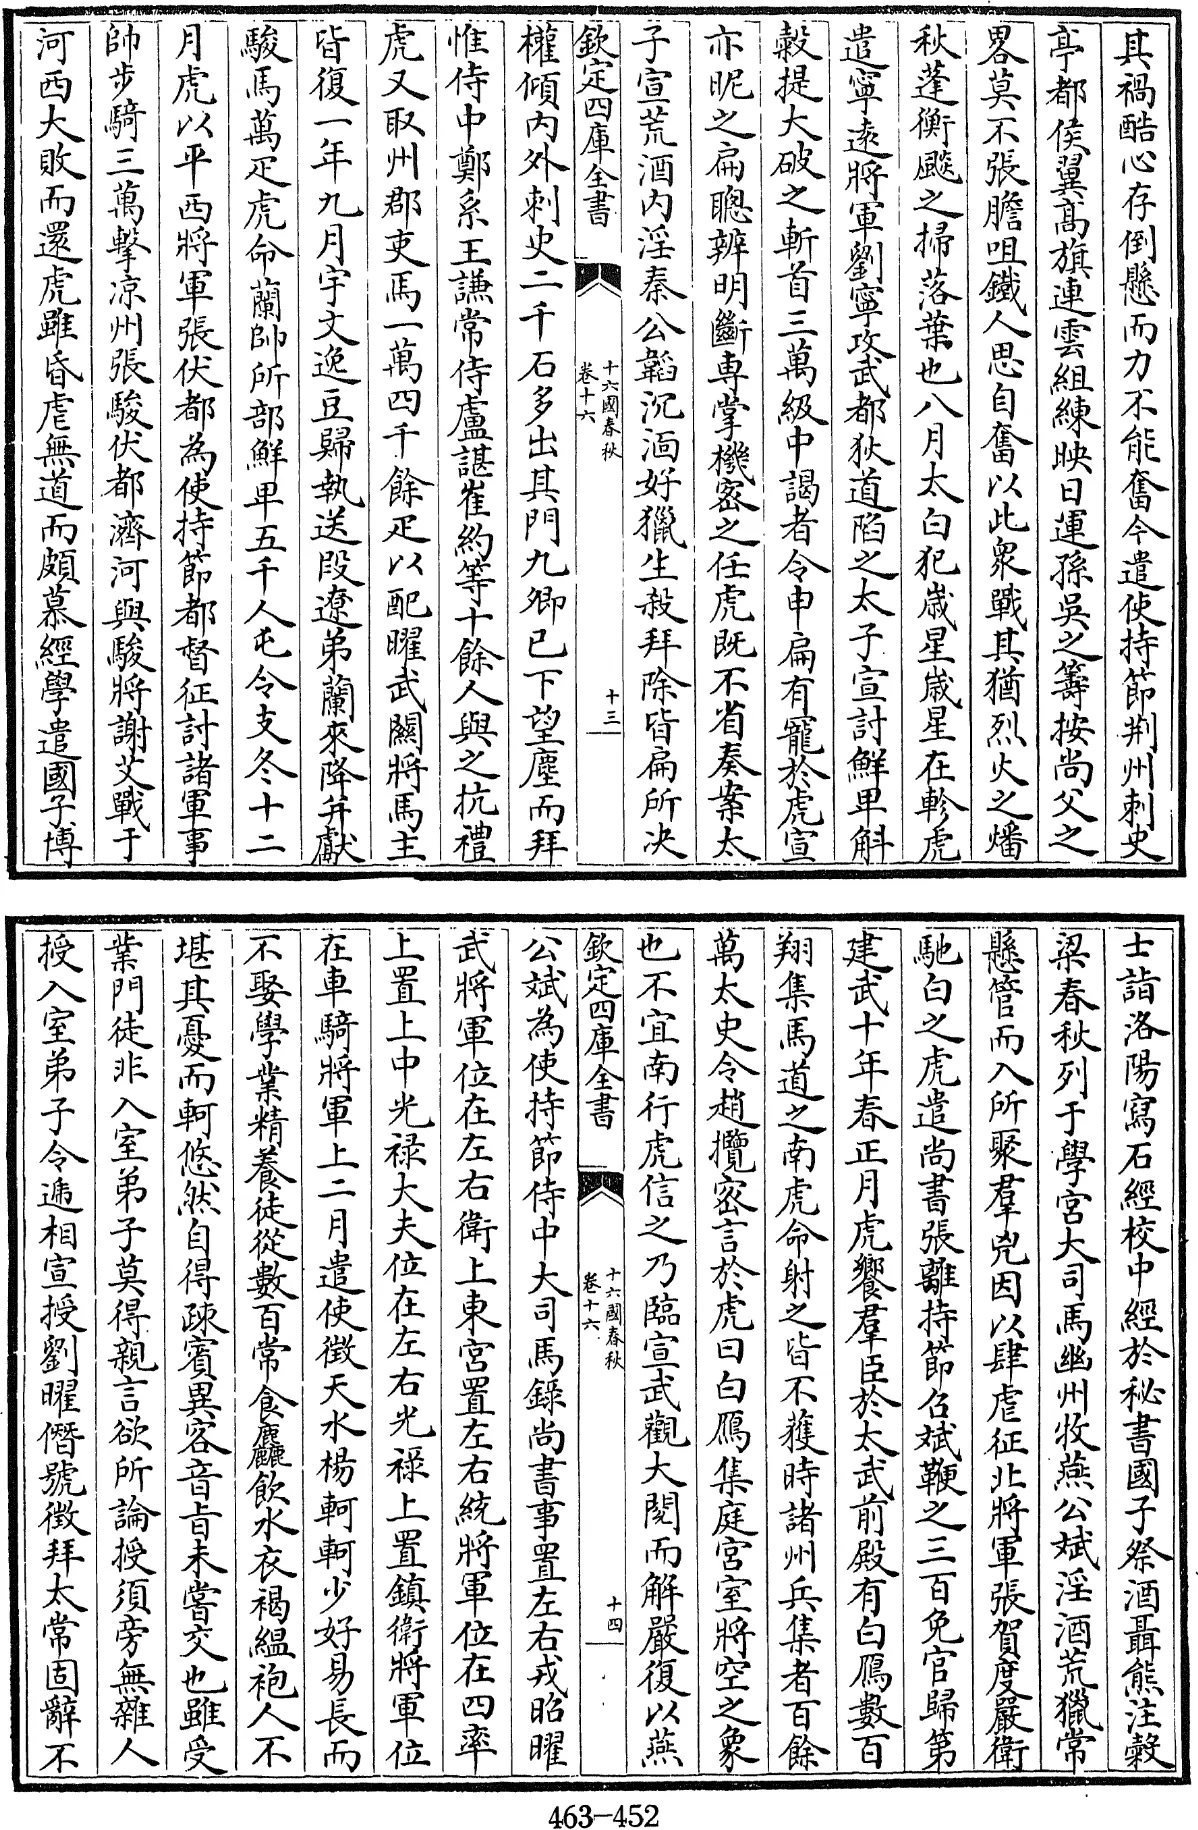 其禍酷心存倒懸而力不能奮今遣使持節荆州刺史
亭都侯翼髙旗連雲組練映日運孫吳之籌按尚父之
畧莫不張膽咀鐵人思自奮以此衆戰其猶烈火之燔
秋蓬衡飈之掃落葉也八月太白犯嵗星嵗星在軫虎
遣寧遠將軍劉寧攻武都狄道陷之太子宣討鮮卑斛
糓提大破之斬首三萬級中謁者令申扁有寵於虎宣
亦昵之扁聰辨明斷専掌機宻之任虎既不省奏案太
子宣荒酒内淫秦公韜沉湎好獵生殺拜除皆扁所决
欽定四庫全書
十六國春秋
卷十六
十三
權傾内外刺史二千石多出其門九卿已下望塵而拜
惟侍中鄭系王謙常侍盧諶崔約等十餘人與之抗禮
虎又取州郡吏馬一萬四千餘疋以配曜武關將馬主
皆復一年九月宇文逸豆歸執送段遼弟蘭來降并獻
駿馬萬疋虎命蘭帥所部鮮卑五千人屯令支冬十二
月虎以平西將軍張伏都為使持節都督征討諸軍事
帥步騎三萬擊凉州張駿伏都濟河與駿將謝艾戰于
河西大敗而還虎雖昏虐無道而頗慕經學遣國子博
士詣洛陽寫石經校中經於秘書國子祭酒聶熊注糓
梁春秋列于學宮大司馬幽州牧燕公斌淫酒荒獵常
懸管而入所聚羣兇因以肆虐征北將軍張賀度嚴衛
馳白之虎遣尚書張離持節召斌鞭之三百免官歸第
建武十年春正月虎饗羣臣於太武前殿有白鴈數百
翔集馬道之南虎命射之皆不獲時諸州兵集者百餘
萬太史令趙攬宻言於虎曰白鴈集庭宮室將空之象
也不宜南行虎信之乃臨宣武觀大閱而解嚴復以燕
欽定四庫全書
十六國春秋
卷十六
十四
公斌為使持節侍中大司馬錄尚書事置左右戎昭曜
武將軍位在左右衛上東宮置左右統將軍位在四率
上置上中光禄大夫位在左右光祿上置鎮衛將軍位
在車騎將軍上二月遣使徴天水楊軻軻少好易長而
不娶學業精養徒從數百常食麤飲水衣褐緼袍人不
堪其憂而軻悠然自得疎賓異容音旨未嘗交也雖受
業門徒非入室弟子莫得親言欲所論授須旁無雜人
授入室弟子令遞相宣授劉曜僭號徴拜太常固辭不
463-452